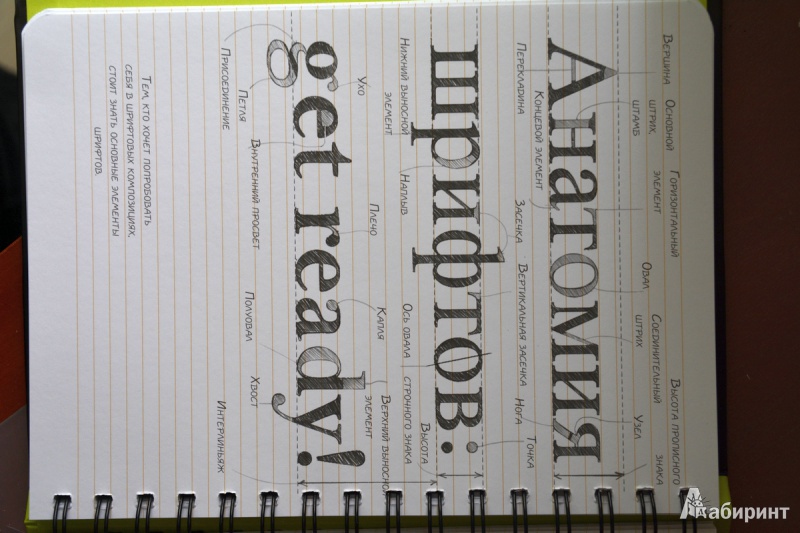 Вершина
Основной
штрих,
штамб
Горизонтальный
элемент
Овал
Соединительный
штрих
Узел
Высота прописного
знака
Анатомия
Перекладина
Концевой элемент
Засечка
Вертикальная засечка
Нога
Точка
шрифтов:
Нижний выносной
элемент
Наплыв
Ось овала
Высота
строчного знака
Ухо
Плечо
Капля
Верхний выносной
элемент
get ready!
Присоединение
Петля
Внутренний просвет
Полуовал
Хвост
Интерлиньяж
Тем, кто хочет попробовать
себя в шрифтовых композициях,
стоит знать основные элементы
шрифтов.
Лабиринт